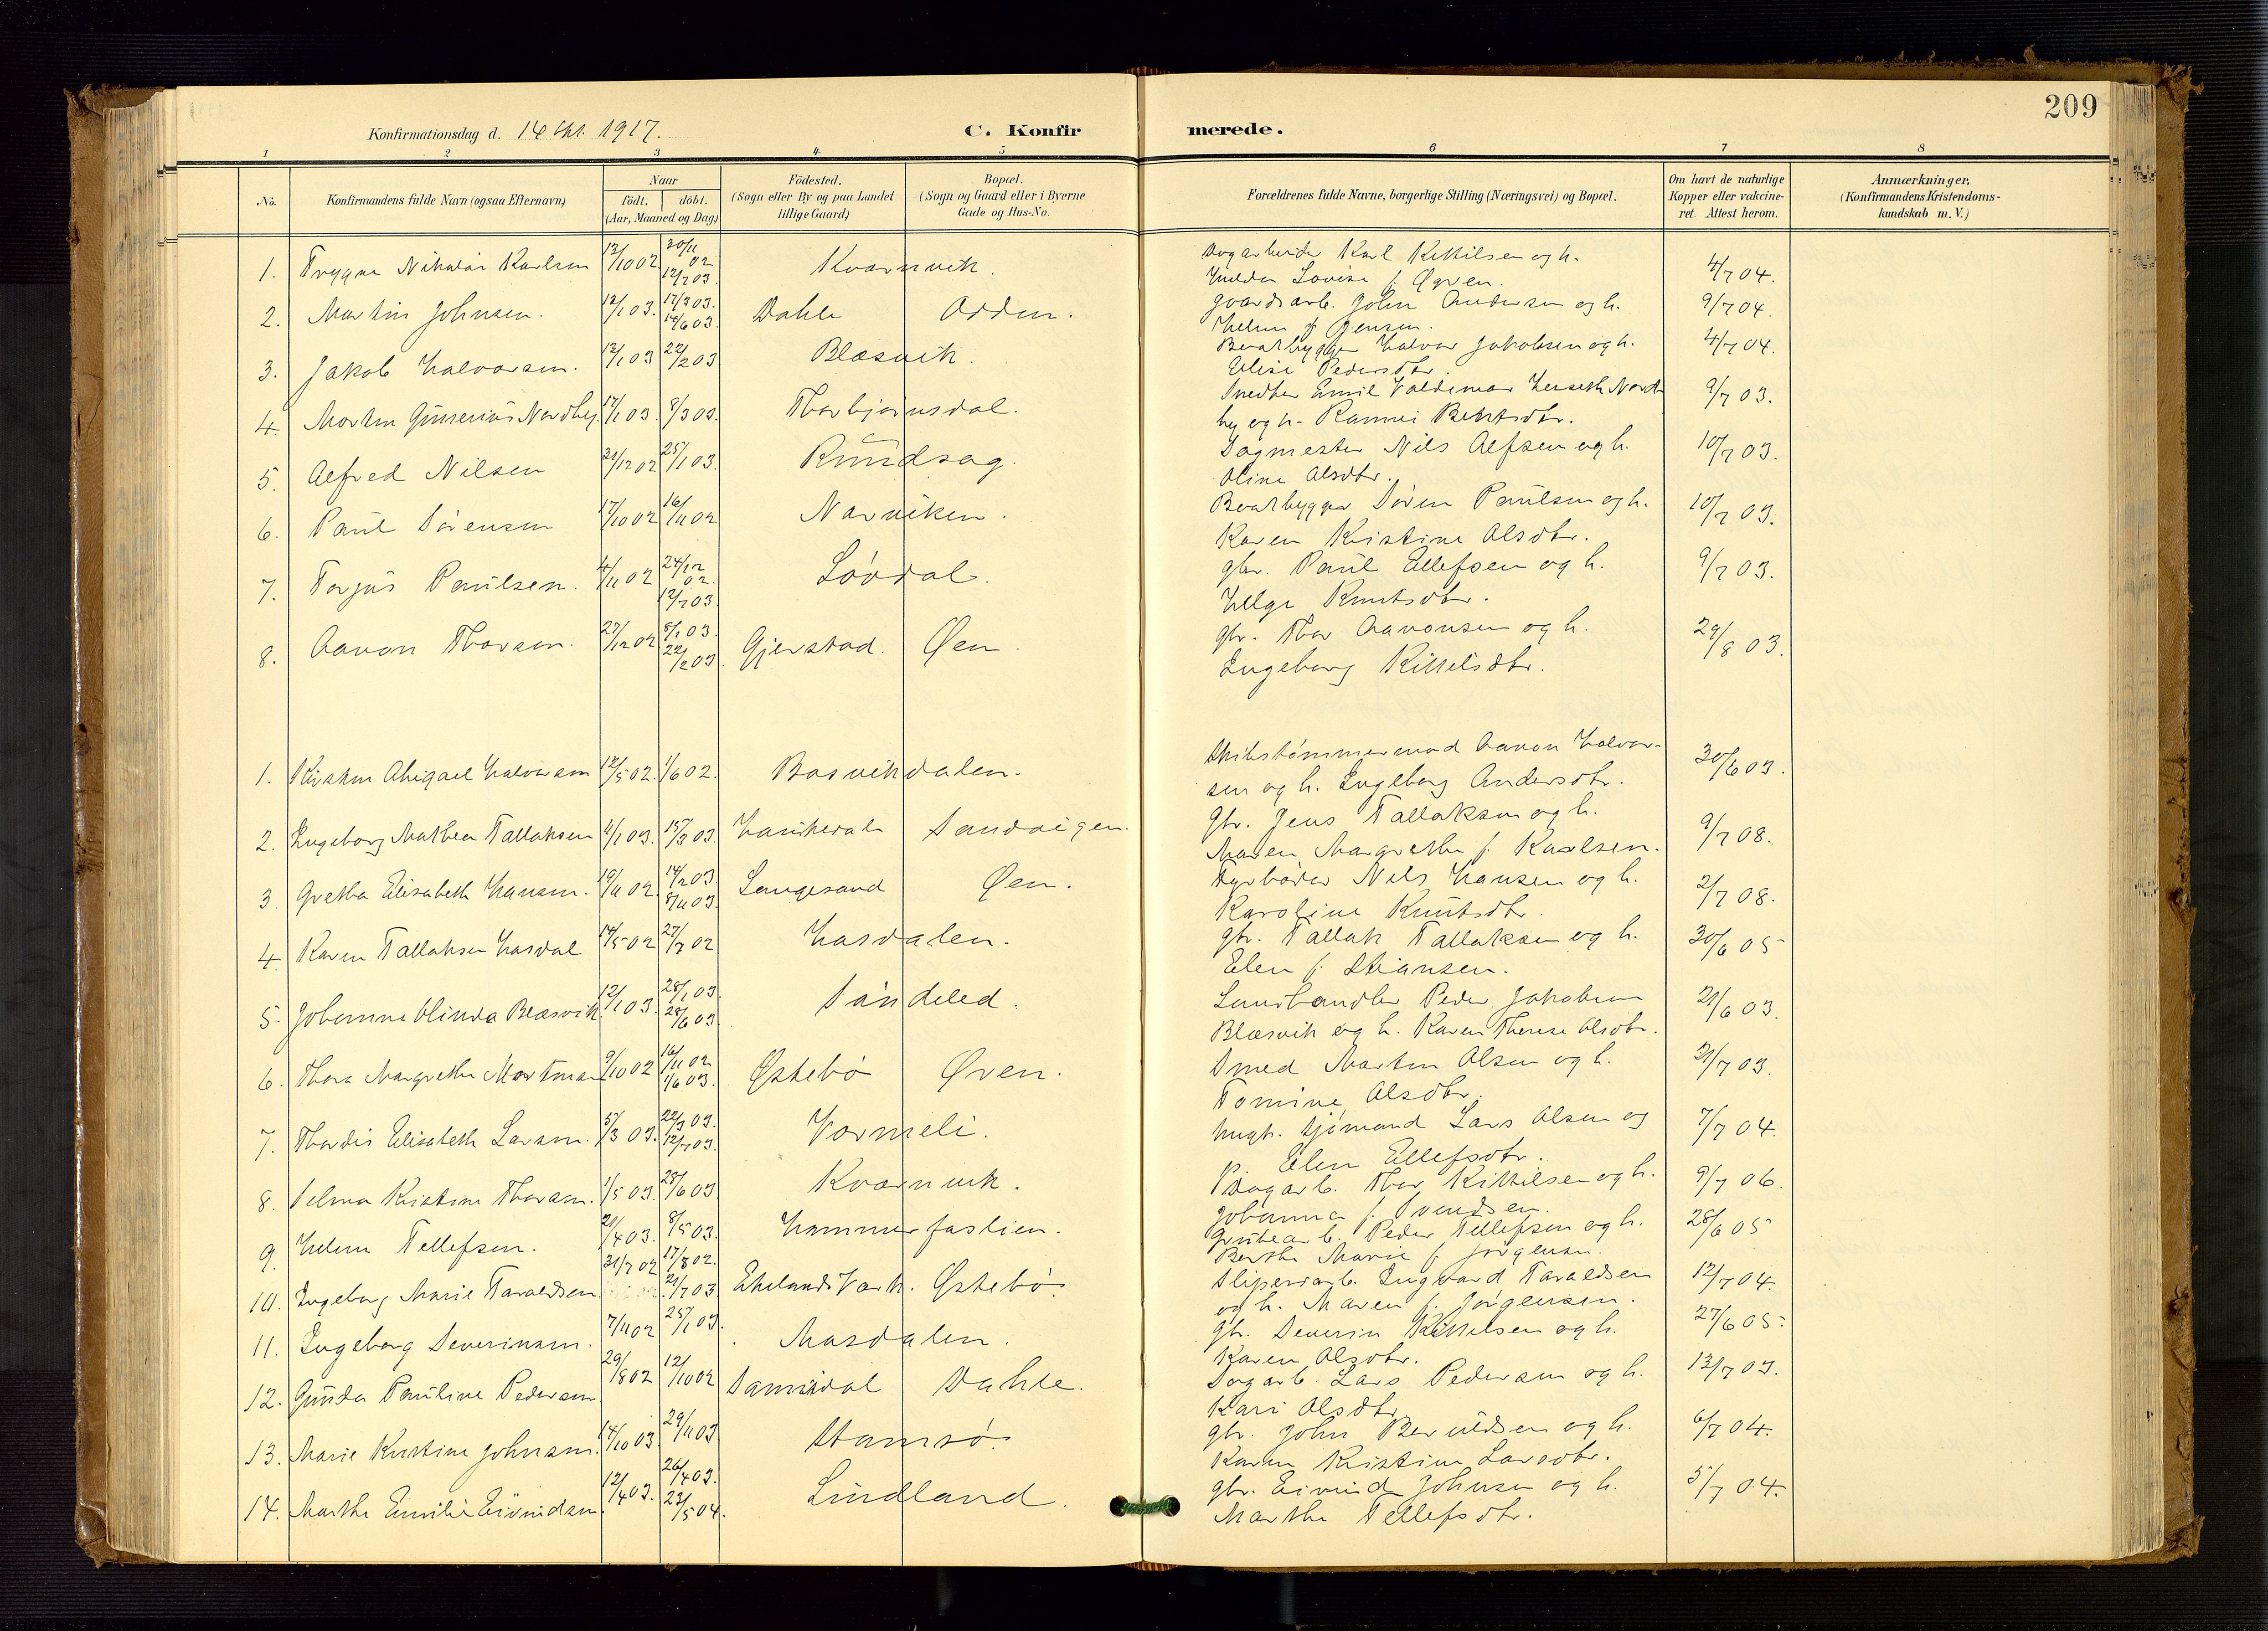 209
Konfirmationsdag d. 14 Okt. 1917. C. Konfir merede.
1 2 3 4 5 6 7 8
No. Konfirmandens fulde Navn (ogsaa Efternavn) Naar født. døbt. (Aar, Maaned og Dag) Födested. (Sogn eller By og paa Landet tillige Gaard) Bopæl. (Sogn og Gaard eller i Byerne Gade og Hus-No. Forældrenes fulde Navne, borgerlige Stilling (Næringsvei) og Bopæl. Om havt de naturlige Kopper eller vakcineret. Attest herom. Anmærkninger, (Konfirmandens Kristendomskundskab m. V.)
1. Trygve Nikolai Karlsen 12/10 02 30/11 02 12/7 03 Kvarnvik. Karl Kittilsen og h.
Hulda Lovise f. Øgren. 4/7 04.
2. Martin Johnsen. 12/1 03. 17/3 03. 14/6 03 Dahle Odden. gaardsarb. John Andersen og h.
Helene f. Jensen. 9/7 04.
3. Jakob Halvorsen. 12/1 03 22/2 03 Blæsvik. Baatbygger Halvor Jakobsen og h.
Elise Pedersdtr. 4/7 04.
4. Morten Gunerius Nordby. 17/1 03. 8/3 03. Thorbjørnsdal. Snedker Emil Valdemar Nord-
by og h. Ranvei Berntsdtr. 9/7 03.
5. Alfred Nilsen 21/12 02 25/1 03. Rundsag. Sagmester Nils Alfsen og h.
Oline Alsdtr. 10/7 03.
6. Paul Sørensen 17/10 02 16/11 02 Narviken. Baatbygger Søren Paulsen og h.
Karen Kristine Alsdtr. 10/7 03.
7. Torjus Paulsen. 4/11 02 24/12 02. 12/7 03. Løvdal. gbr. Paul Ellefsen og h.
Helge Knutsdtr. 9/7 03.
8. Aanon Thorsen. 23/12 02 5/1 03. 22/2 03. Gjerstad. Øen. gbr. Thor Aanonsen og h.
Ingeborg Kittilsdtr. 29/8 03.
1. Kirsten Abigael Halvorsen 12/5 02. 1/6 02. Bosvikdalen. Skibstømmermand Aanon Halvor-
sen og h. Ingeborg Andersdtr. 30/6 03.
2. Ingeborg Mathea Tallaksen 4/1 03. 15/3 03. Haukedal Sandvigen. gbr. Jens Tallaksen og h.
Maren Margrethe f. Karlsen. 9/7 08.
3. Gretha Elisabeth Hansen. 19/11 02. 14/2 03. 8/11 03 Langesund Øen. Fyrbøder Nils Hansen og h.
Karoline Knutsdtr. 2/7 08.
4. Karen Tallaksen Hasdal 14/5 02 27/7 02 Hasdalen. gbr. Tallak Tallaksen og h.
Elen f. Stiansen. 30/6 05
5. Johanne Olinda Blæsvik 12/1 03. 25/1 03. 28/6 03 Søndeled. Landhandler Peder Jakobsen
Blæsvik og h. Karen Therese Alsdtr. 21/6 03.
6. Thora Margrethe Mortman 9/10 02 16/11 02 1/6 03. Østebø Øven. Smed Morten Olsen og h.
Tomine Alsdtr. 21/7 03.
7. Thordis Elisabeth Larsen. 5/3 03. 22/3 03. 12/7 03. Vormeli. sjømand Lars Olsen og
P. Elen Ellefsdtr. 7/7 04.
8. Selma Kristine Thorsen. 1/5 03. 28/6 03 Kvarnvik. Sagarb. Thor Kittilsen og h.
Johanna f. Svendsen. 9/7 06.
9. Helene Tellefsen. 21/4 03. 8/5 03. Hammerfaslien. Grubearb. Peder Tellefsen og h.
Berthe Marie f. Jørgensen. 28/6 05
10. Ingeborg Marie Taraldsen 31/7 02 17/8 02. 21/7 03 Ekelands Værk. Østebø. Sliperiarb. Ingvard Taraldsen
og h. Maren f. Jørgensen. 12/7 04.
11. Ingeborg Severinsen. 7/11 02 25/1 03. Masdalen. gbr. Severin Kittilsen og h.
Karen Olsdtr. 27/6 05.
12. Gunda Pauline Pedersen 29/8 02 12/10 02 Dahle. Sagarb. Lars Pedersen og h.
Kari Olsdtr. 13/7 03.
13. Marie Kristine Johnsen. 14/10 03. 29/11 03 Stamsø. gbr. John Beruldsen og h.
Karen Kristine Larsdtr. 6/7 04.
14. Marthe Emilie Eivindsen. 12/4 03. 26/4 03. 23/5 04. Lindland. gbr. Eivind Johnsen og h.
Marthe Tellefsdtr. 5/7 04.